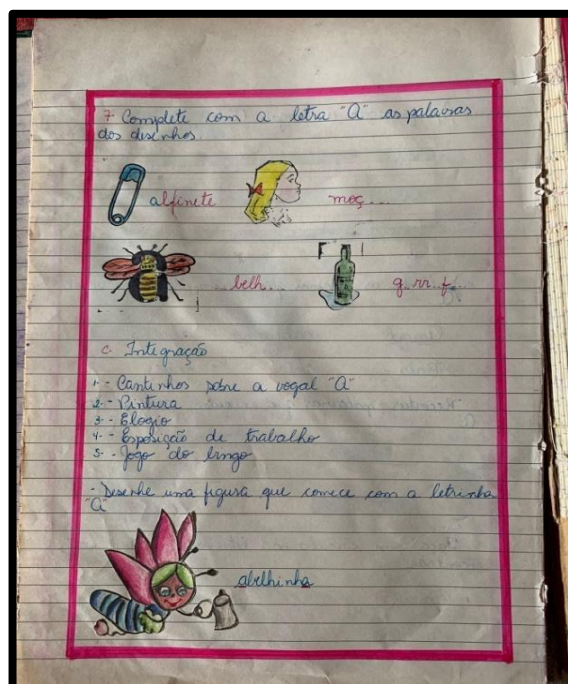 7 Complete com a letra "a" as palavras
dos desenhos.
alfinete
moç....
....belh....
g..rr..f...
C. Integração
1- - Cantinhos sobre a vogal "A"
2- - Pintura
3- - Elogio
4- - Exposição de trabalho
5- - Jogo do bingo
- Desenhe uma figura que comece com a letrinha
"A"
abelhinha